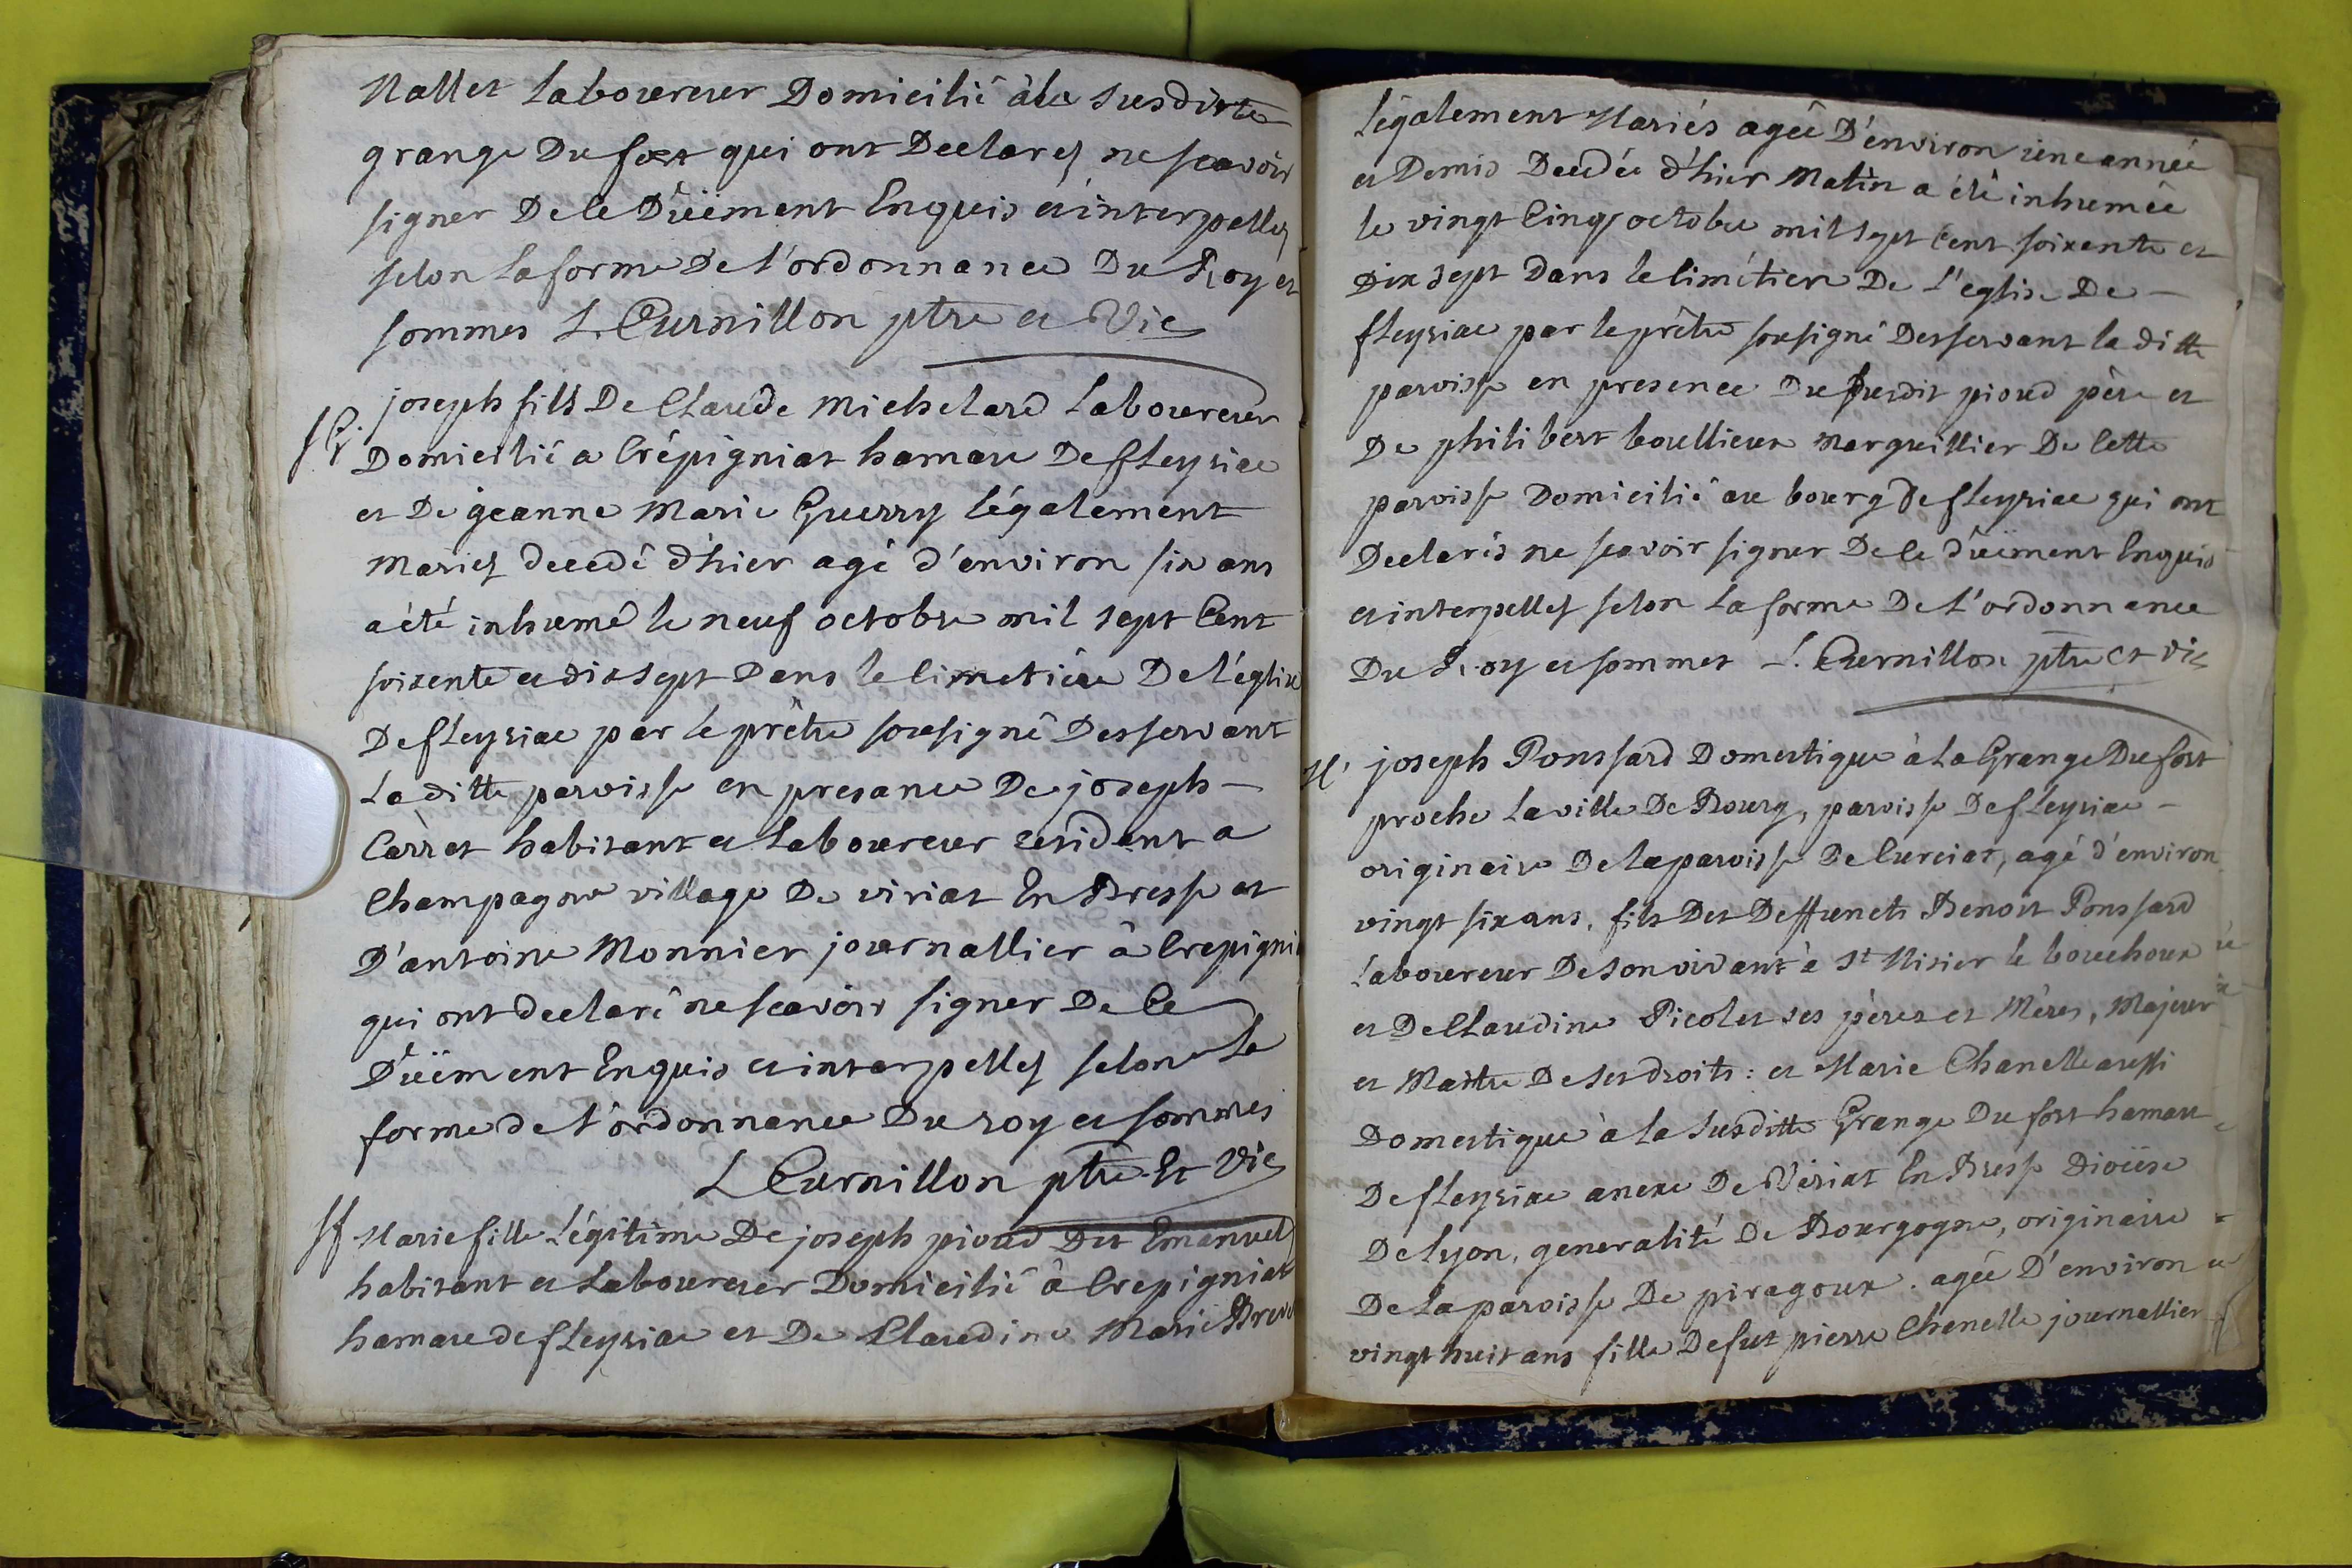 Nallet Laboureur Domicilié àla susditte
grange Du fort qui ont Declarez ne scavoir
signer De ce Düëment Enquis et interpellez
selon La forme De L'ordonnance Du Roy et
sommes L. Curnillon ptre et Vic
joseph fils De Claude Michelard Laboureur
Domicilié a Crépigniat hamau De fleyriac
et De jeanne Marie Guerry légalement
Mariez decedé d'hier agé d'environ six ans
a été inhumé le neuf octobre mil sept Cent
soixente et dix sept Dans le cimetiére De l'église
De fleyriac par le prêtre sousigné Desservant
La ditte paroisse en presance De joseph
Carrat habitant et Laboureur resident a
Champagne village De viriat En Bresse et
D'antoine Monnier journallier â Crepignia
qui ont declaré ne scavoir signer De Ce
Düëment Enquis et interpellez selon La
forme de L'ordonnance Du roy et sommes
L Curnillon ptre Et Vic
Marie fille Légitime De joseph pioud Dit Emanuel
habitant et Laboureur Domicilié â Crepigniat
hamau de fleyriac et De Claudine Marie
légalement Mariés agée D'environ une année
et Demis Decedée d'hier Matin a été inhumée
le vingt Cinq octobre mil sept Cent soixente et
Dix sept Dans le Cimétiere De L'eglise De
fleyriac par le prêtre sousigné Desservant la ditte
paroisse en presence Du susdit pioud père et
De philibert boullieux Marguillier De Cette
paroisse Domicilié au bourg De fleyriac qui ont
Declarés ne scavoir signer De Ce düëment Enquis
et interpellez selon La forme De L'ordonnance
Du Roy et sommes L. Curnillon ptre et vic
M. joseph Ponssard Domestique à La Grange Du fort
proche La ville De Bourg, paroisse De fleyriac
originaire De La paroisse De Curciat, agé d'environ
vingt six ans, fils Des Deffuncts Benoit Ponssard
Laboureur De son vivant à St Nisier le bouchoux
et De Claudine Picolet ses pères et Mères, Majeur
et Maitre De ses droits : et Marie Chanelle aussi
Domestique à La susditte Grange Du fort hamau
De fleyriac anexe De Viriat En Bresse Dioiise
De Lyon, generalité De Bourgogne, originaire
De La paroisse De piragoux . agée D'environ
vingt huit ans fille De fut pierre Chanelle journallier